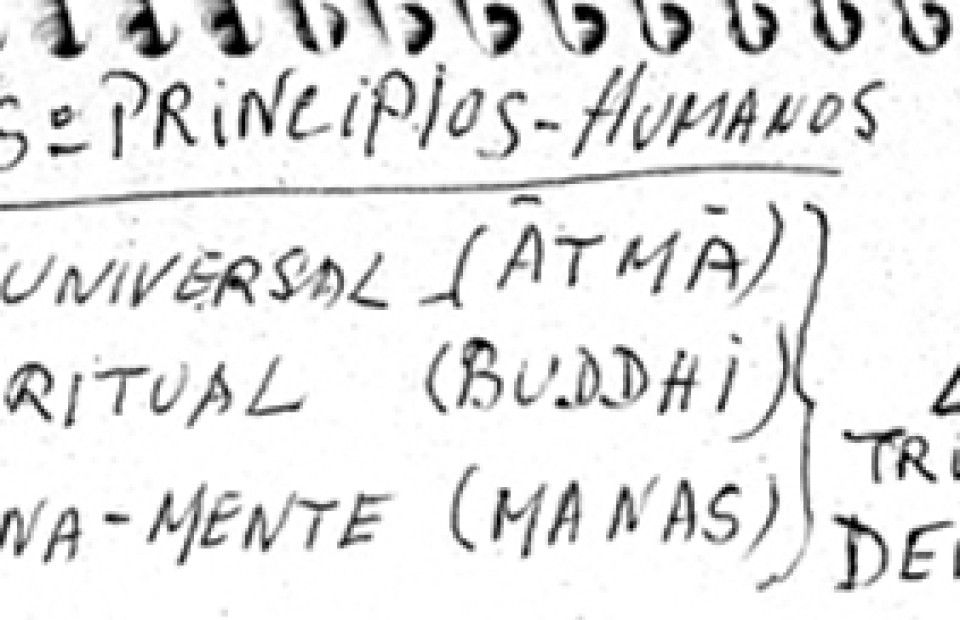 S = PRINCIPIOS - HUMANOS
UNIVERSAL (ĀTMĀ)
RITUAL (BUDDHI)
NA - MENTE (MANAS)
TRI
DE